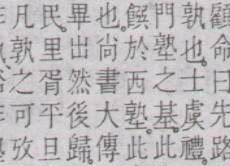 顧命曰先路
孰也。士虞禮
門塾之基。此
饌於西塾。此
也。尚書大傳
畢出然後歸
民里胥平旦
凡孰之可攷